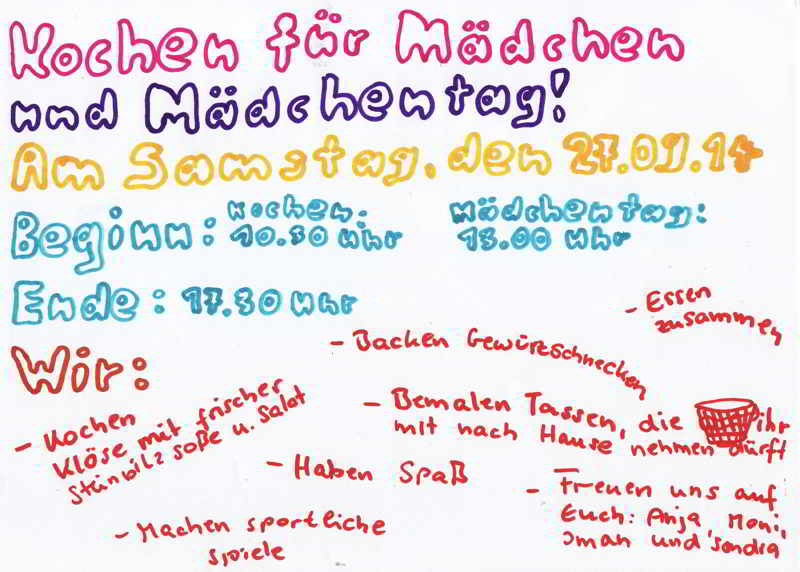 Kochen für Mädchen
und Mädchentag!
Am Samstag, den 27.09.14
Beginn: Kochen: 10.30 Uhr Mädchentag: 13.00 Uhr
Ende: 17.30 Uhr
Wir:
- Essen
zusammen
- Backen Gewürzschnecken
- Bemalen Tassen, die ihr
mit nach Hause nehmen dürft
- Kochen
Klöse mit frischer
Steinpilz soße u. Salat
- Haben Spaß
- Freuen uns auf
Euch: Anja, Moni,
Iman und Sandra
- Machen sportliche
spiele